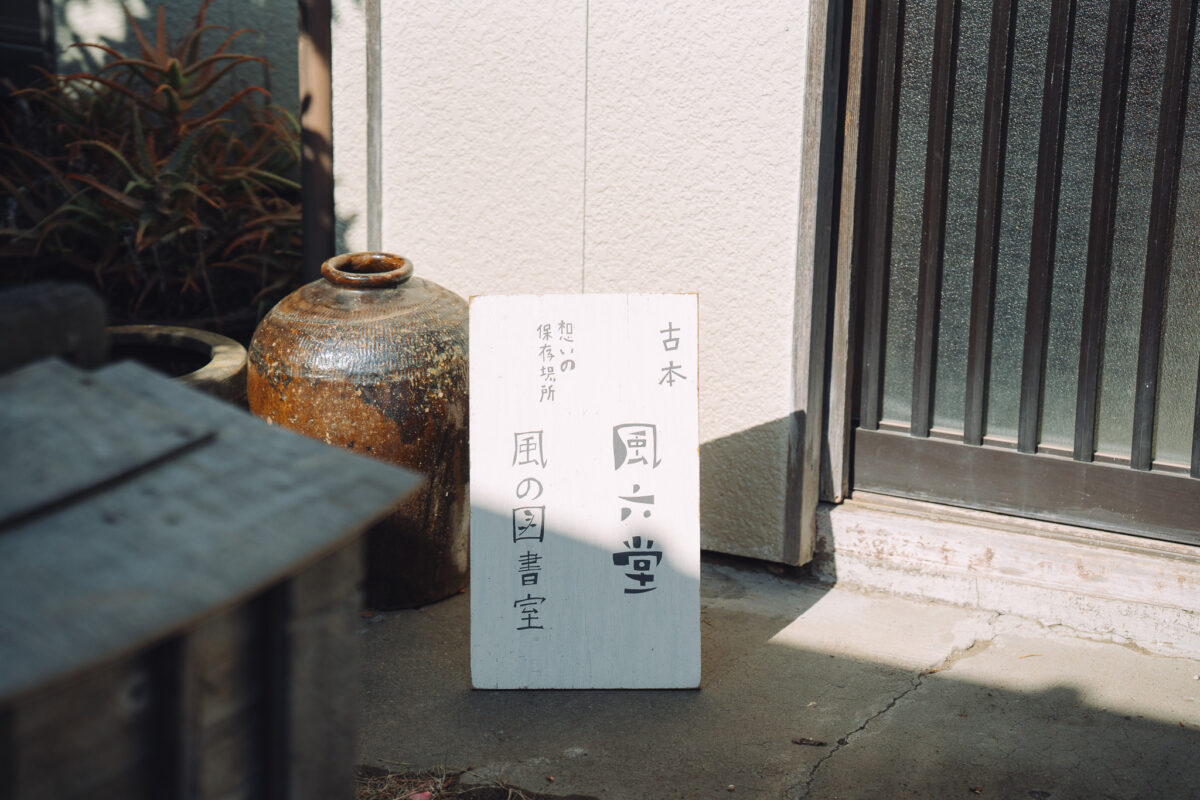 古本
風六堂
想いの
保存場所
風の図書室